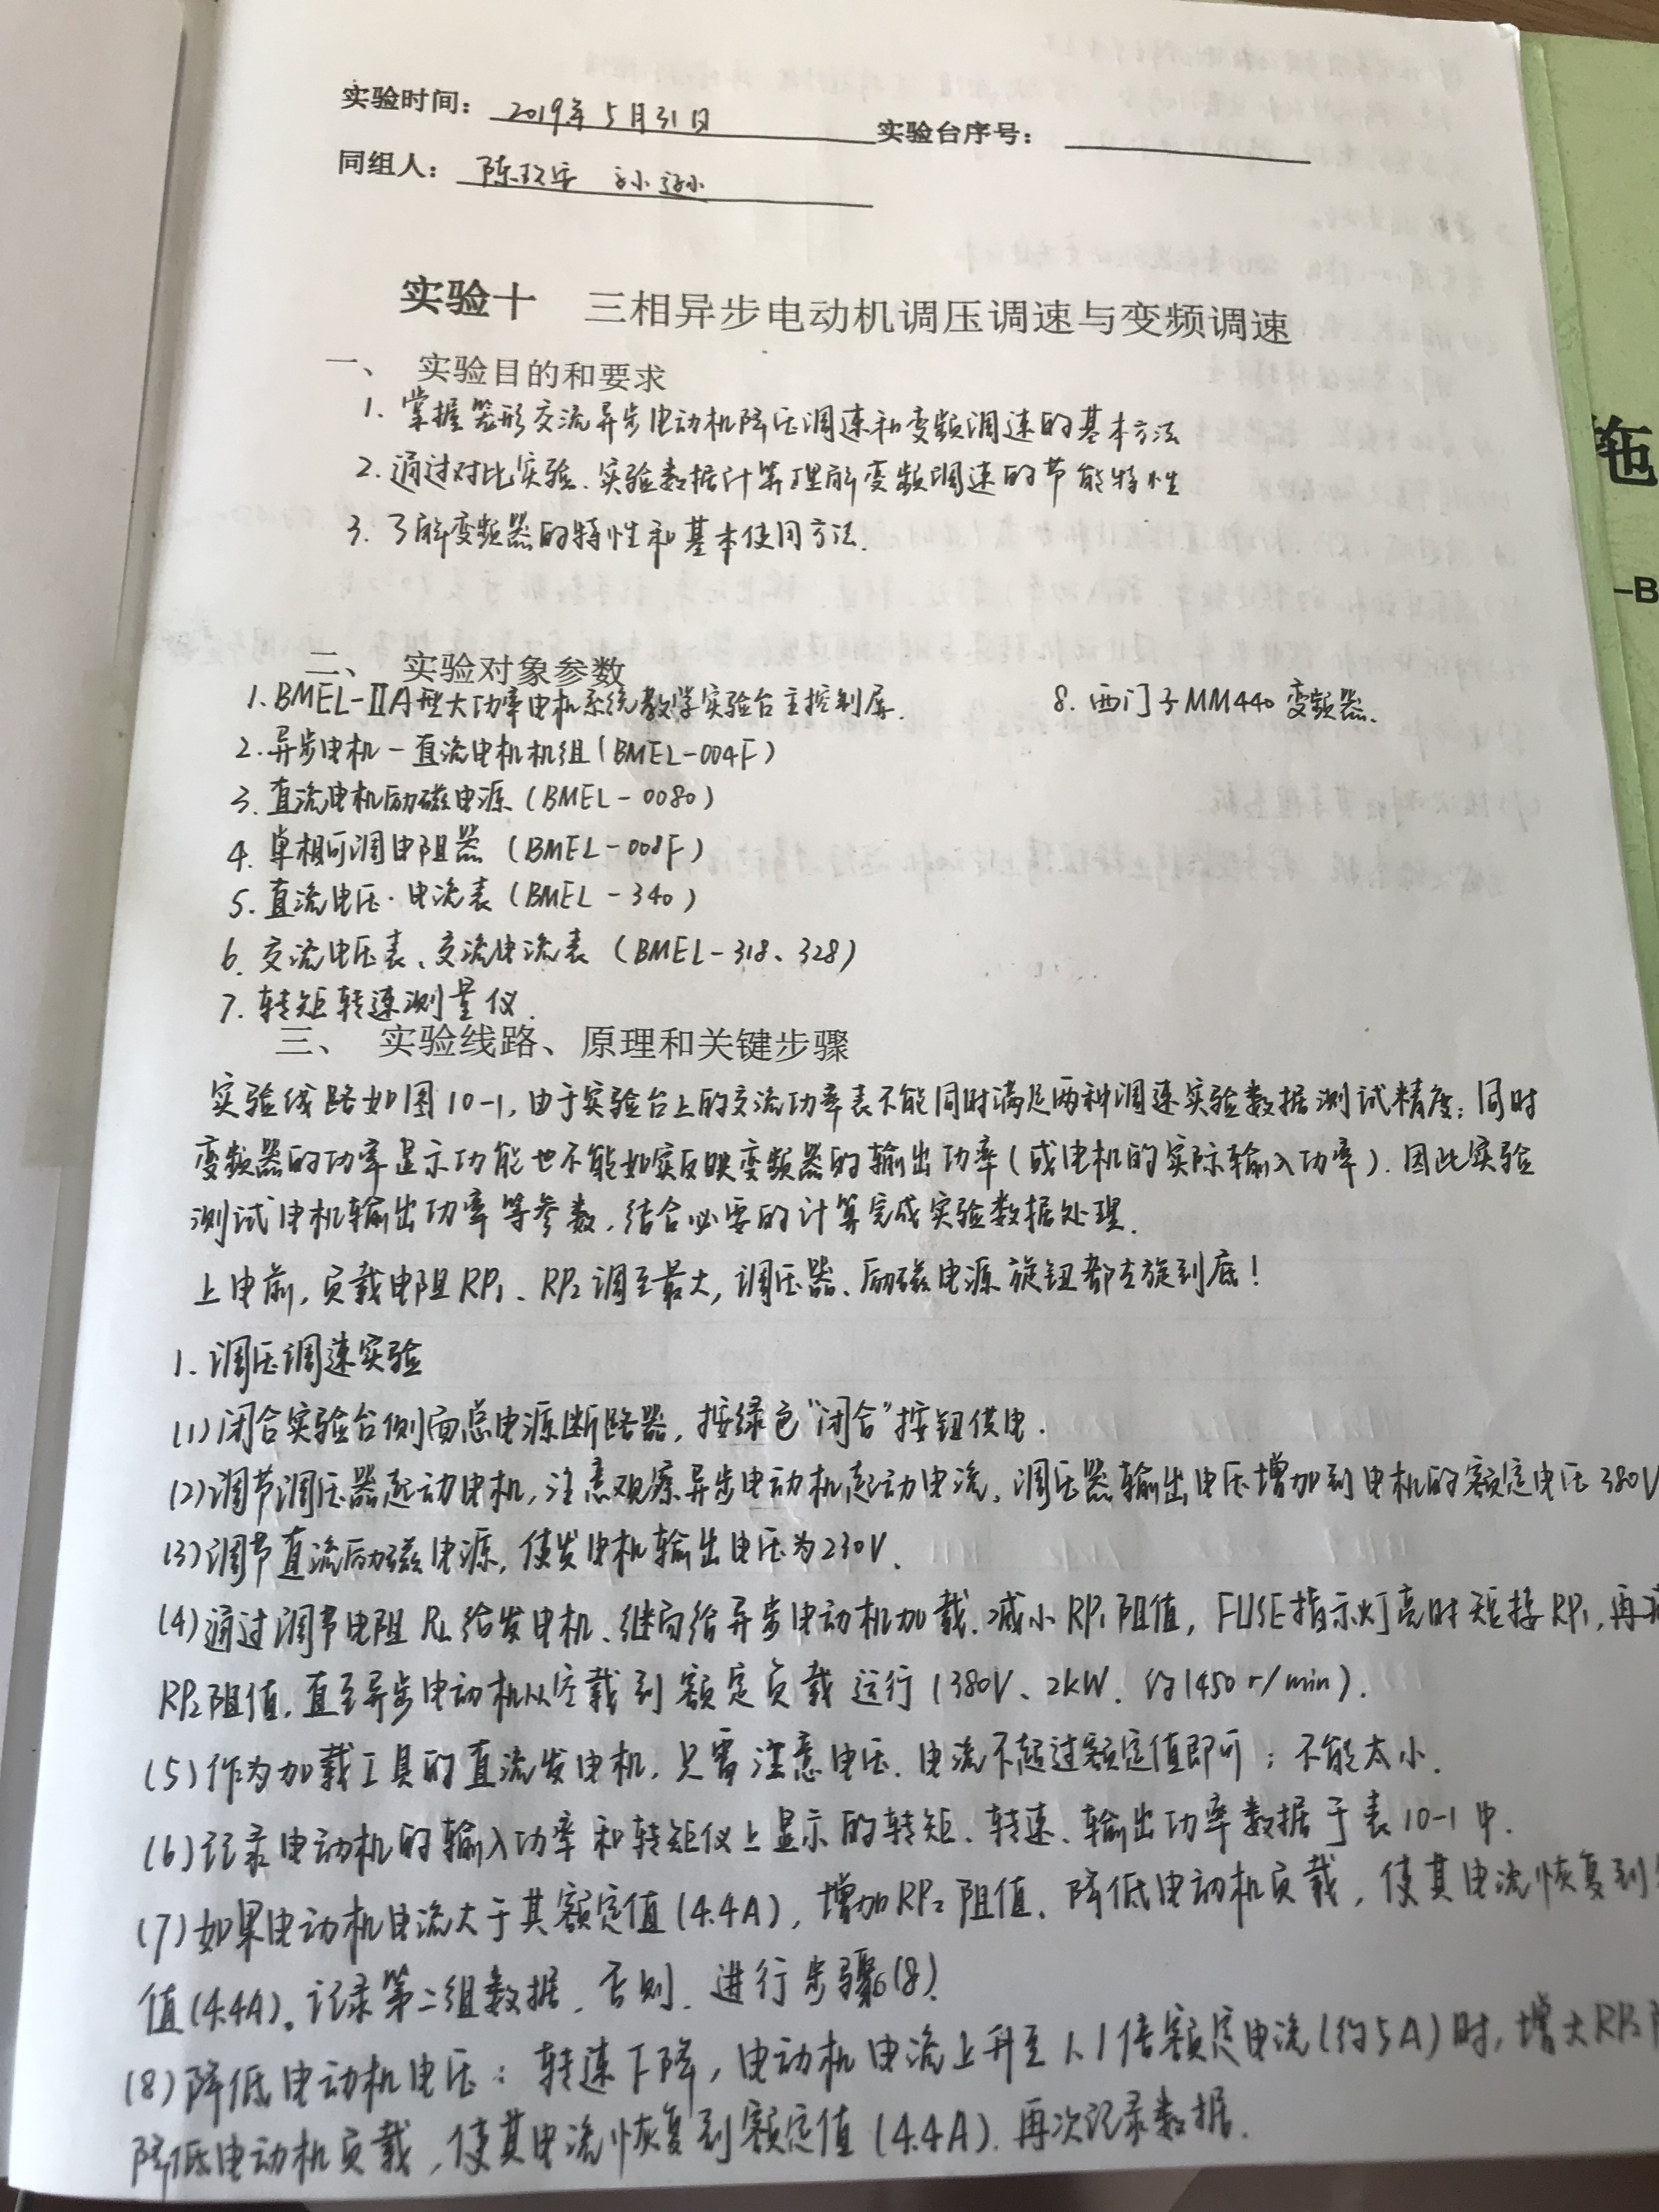 实验时间：2019年5月31日 实验台序号：
同组人：陈玫 孙
实验十 三相异步电动机调压调速与变频调速
一、 实验目的和要求
1. 掌握笼形交流异步电动机降压调速和变频调速的基本方法
2. 通过对比实验、实验数据计算理解变频调速的节能特性
3. 了解变频器的特性和基本使用方法.
二、 实验对象参数
1. BMEL-ⅡA型大功率电机系统教学实验台主控制屏. 8. 西门子MM440变频器.
2. 异步电机-直流电机机组(BMEL-004F)
3. 直流电机励磁电源(BMEL-0080)
4. 单相可调电阻器(BMEL-008F)
5. 直流电压·电流表(BMEL-340)
6. 交流电压表、交流电流表(BMEL-318、328)
7. 转矩转速测量仪.
三、 实验线路、原理和关键步骤
实验线路如图10-1, 由于实验台上的交流功率表不能同时满足两种调速实验数据测试精度；同时
变频器的功率显示功能也不能如实反映变频器的输出功率(或电机的实际输入功率). 因此实验
测试电机输出功率等参数, 结合必要的计算完成实验数据处理.
上电前, 负载电阻RP₁、RP₂调至最大, 调压器、励磁电源旋钮都左旋到底!
1. 调压调速实验
(1)闭合实验台侧面总电源断路器, 按绿色"闭合"按钮供电.
(2)调节调压器起动电机, 注意观察异步电动机起动电流, 调压器输出电压增加到电机的额定电压380V
(3)调节直流励磁电源, 使发电机输出电压为230V.
(4)通过调节电阻RL给发电机、继而给异步电动机加载. 减小RP₁阻值, FUSE指示灯亮时短接RP₁, 再
RP₂阻值, 直至异步电动机从空载到额定负载运行(380V、2kW. 约1450r/min).
(5)作为加载工具的直流发电机, 只需注意电压. 电流不超过额定值即可；不能太小.
(6)记录电动机的输入功率和转矩仪上显示的转矩、转速、输出功率数据于表10-1中.
(7)如果电动机电流大于其额定值(4.4A), 增加RP₂阻值. 降低电动机负载, 使其电流恢复到
值(4.4A)。记录第二组数据. 否则. 进行步骤(8)
(8)降低电动机电压；转速下降, 电动机电流上升至1.1倍额定电流(约5A)时, 增大RP₂
降低电动机负载, 使其电流恢复到额定值(4.4A). 再次记录数据.
拖
-B